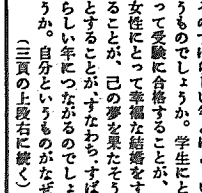 うものでしょうか。学生にと
って受験に合格することが、
女性にとって幸福な結婚をす
ることが、己の夢を果たそう
とすることが、すなわち、すば
らしい年につながるのでしょ
うか。自分というものがなぜ
（三頁の上段右に続く）